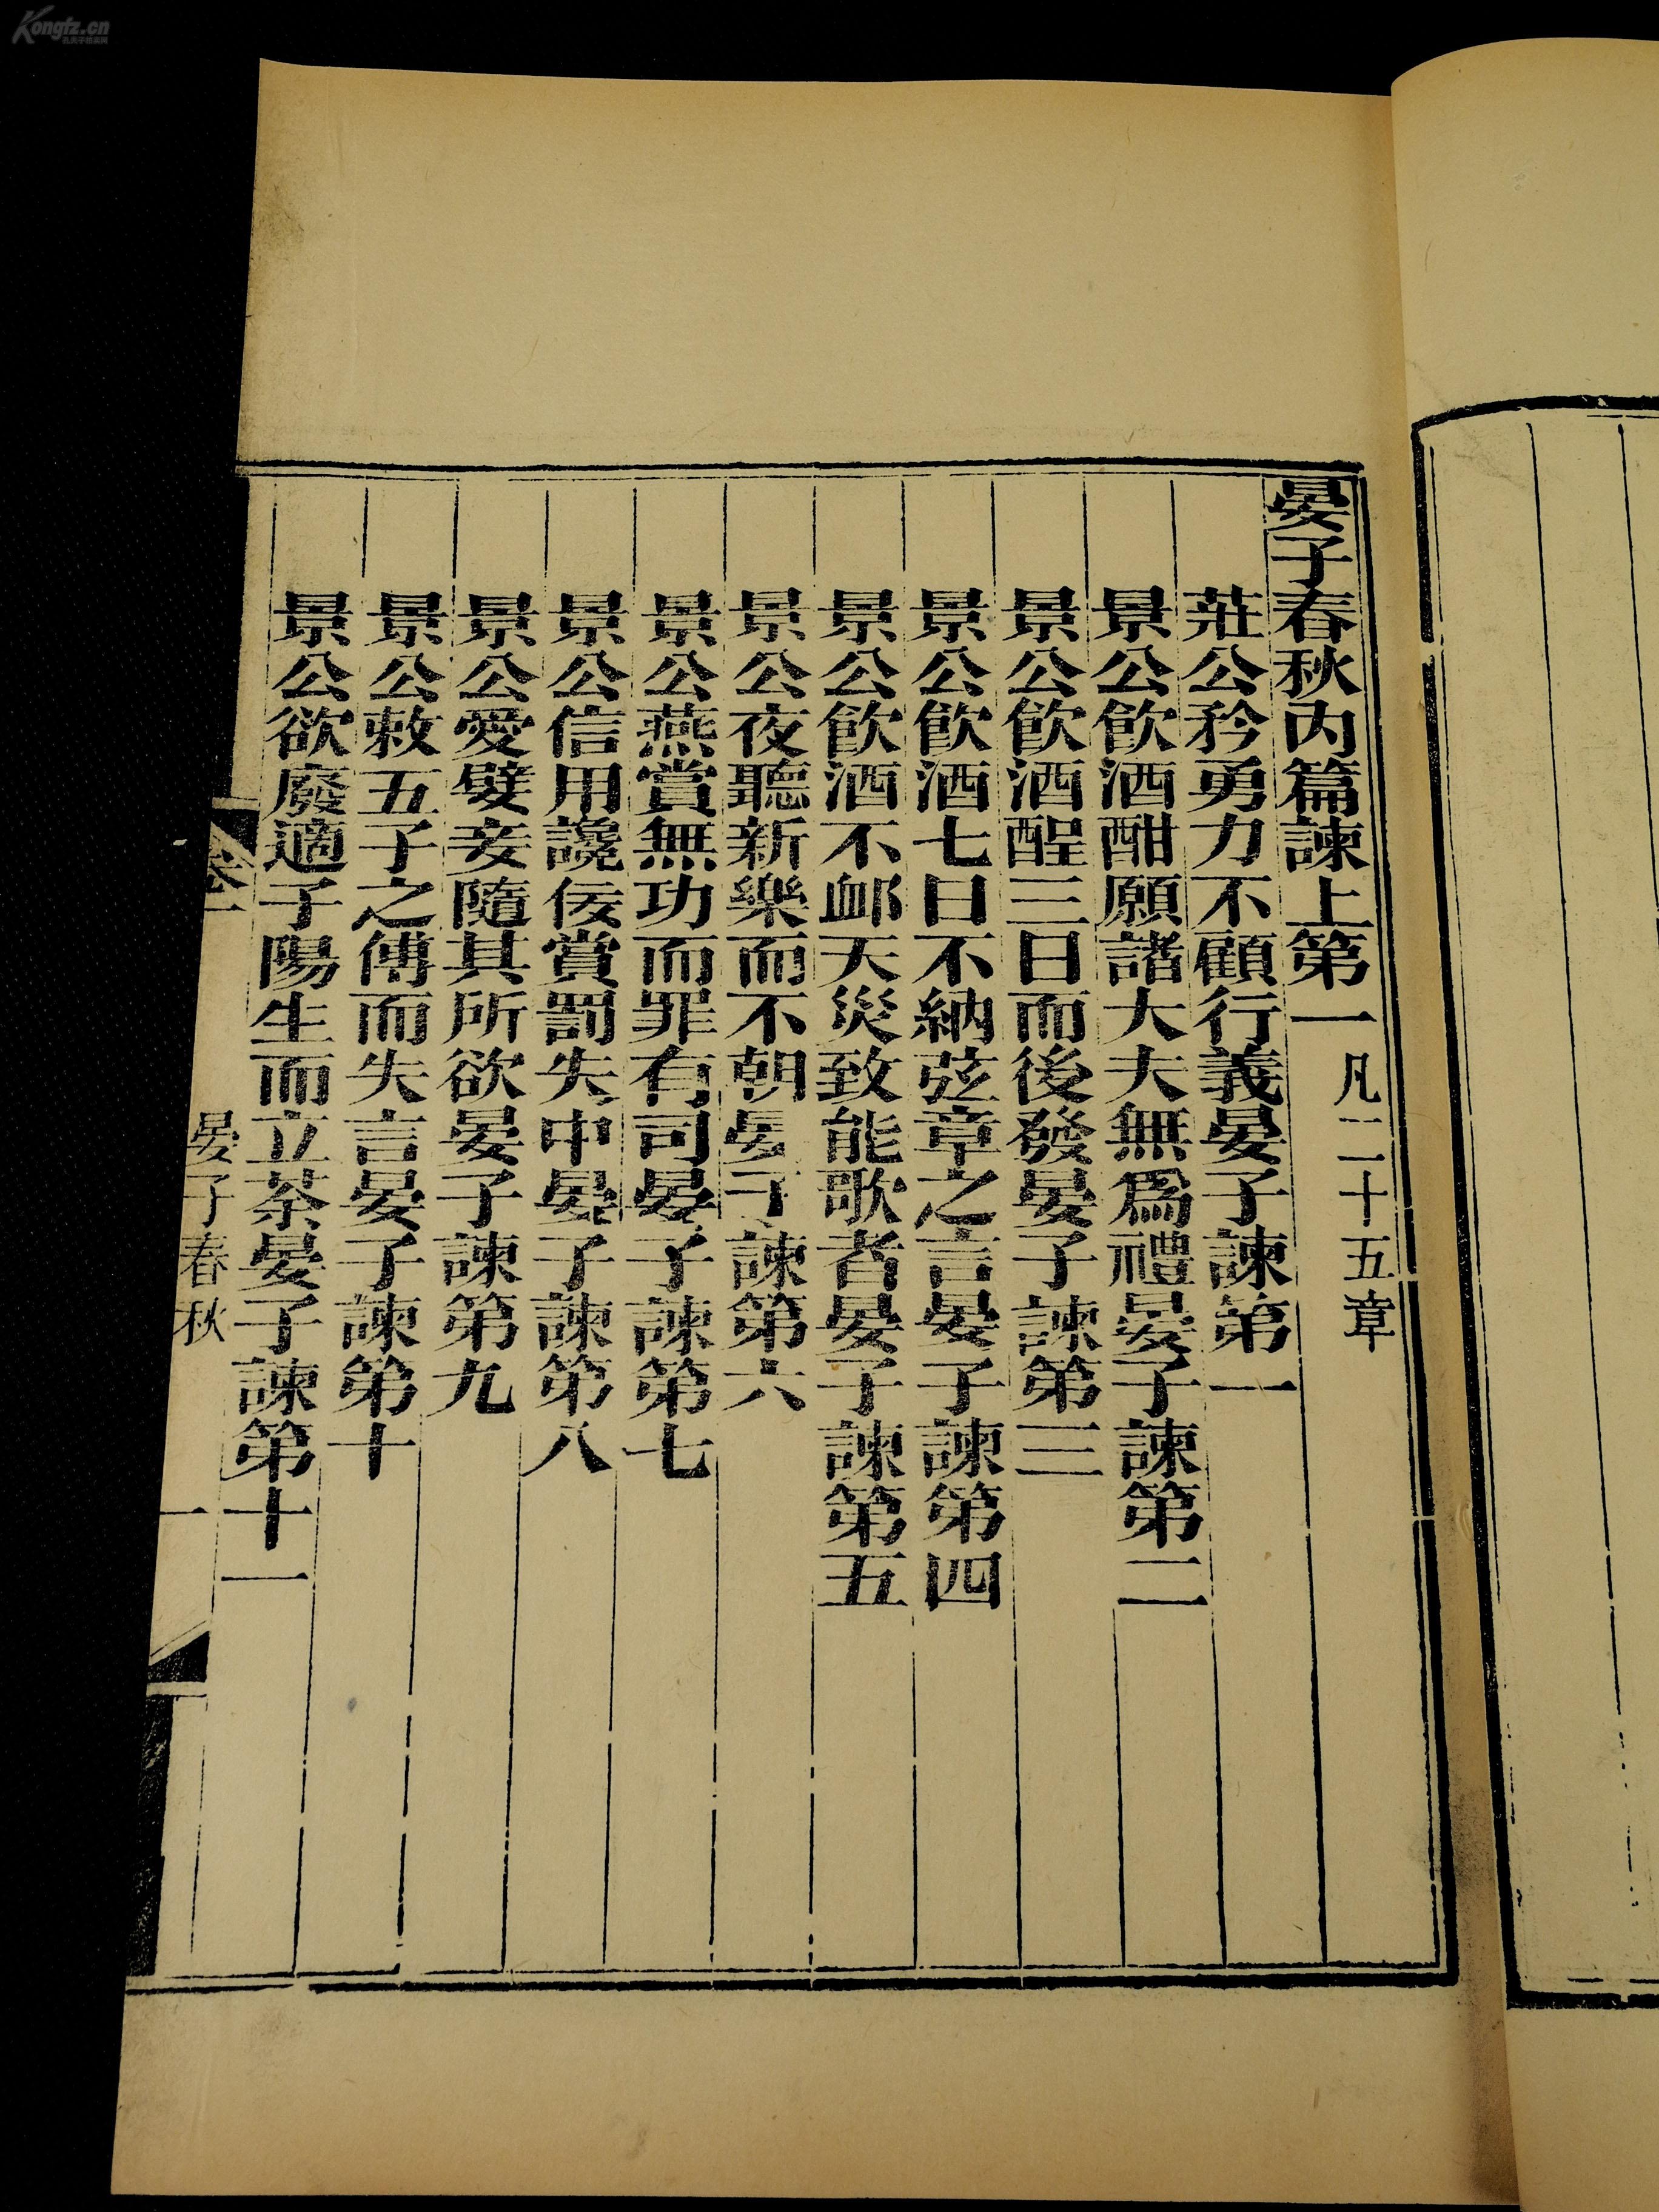 晏子春秋內篇諫上第一 凡二十五章
莊公矜勇力不顧行義晏子諫第一
景公飮酒酣願諸大夫無爲禮晏子諫第二
景公飮酒酲三日而後發晏子諫第三
景公飮酒七日不納弦章之言晏子諫第四
景公飮酒不卹天災致能歌者晏子諫第五
景公夜聽新樂而不朝晏子諫第六
景公燕賞無功而罪有司晏子諫第七
景公信用讒佞賞罰失中晏子諫第八
景公愛嬖妾隨其所欲晏子諫第九
景公敕五子之傅而失言晏子諫第十
景公欲廢適子陽生而立荼晏子諫第十一
卷一
晏子春秋
一
Kongfz.cn